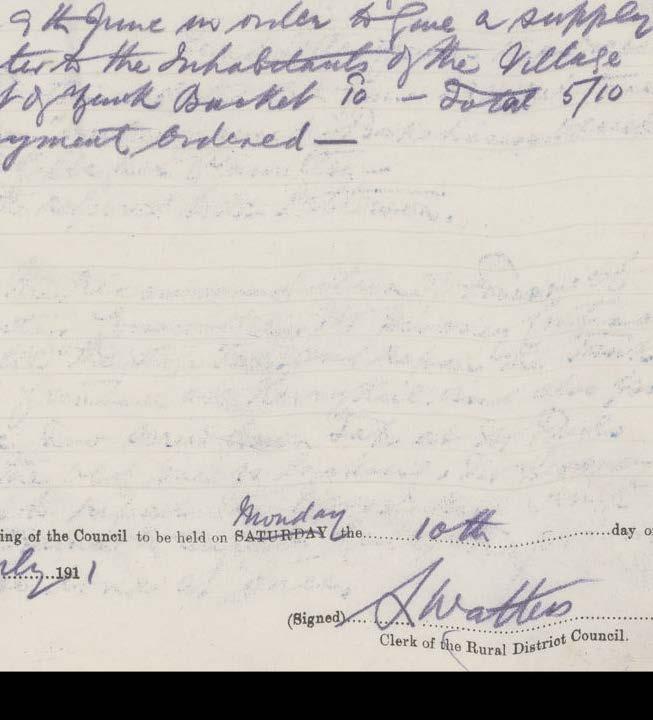 9th June in order to give a supply
ter to the Inhabitants of the Village
t of Zink Bucket 10 — Total 5/10
yment Ordered —
Monday
ing of the Council to be held on SATURDAY the 10th day o
ly 1911
(Signed) S Watters
Clerk of the Rural District Council.